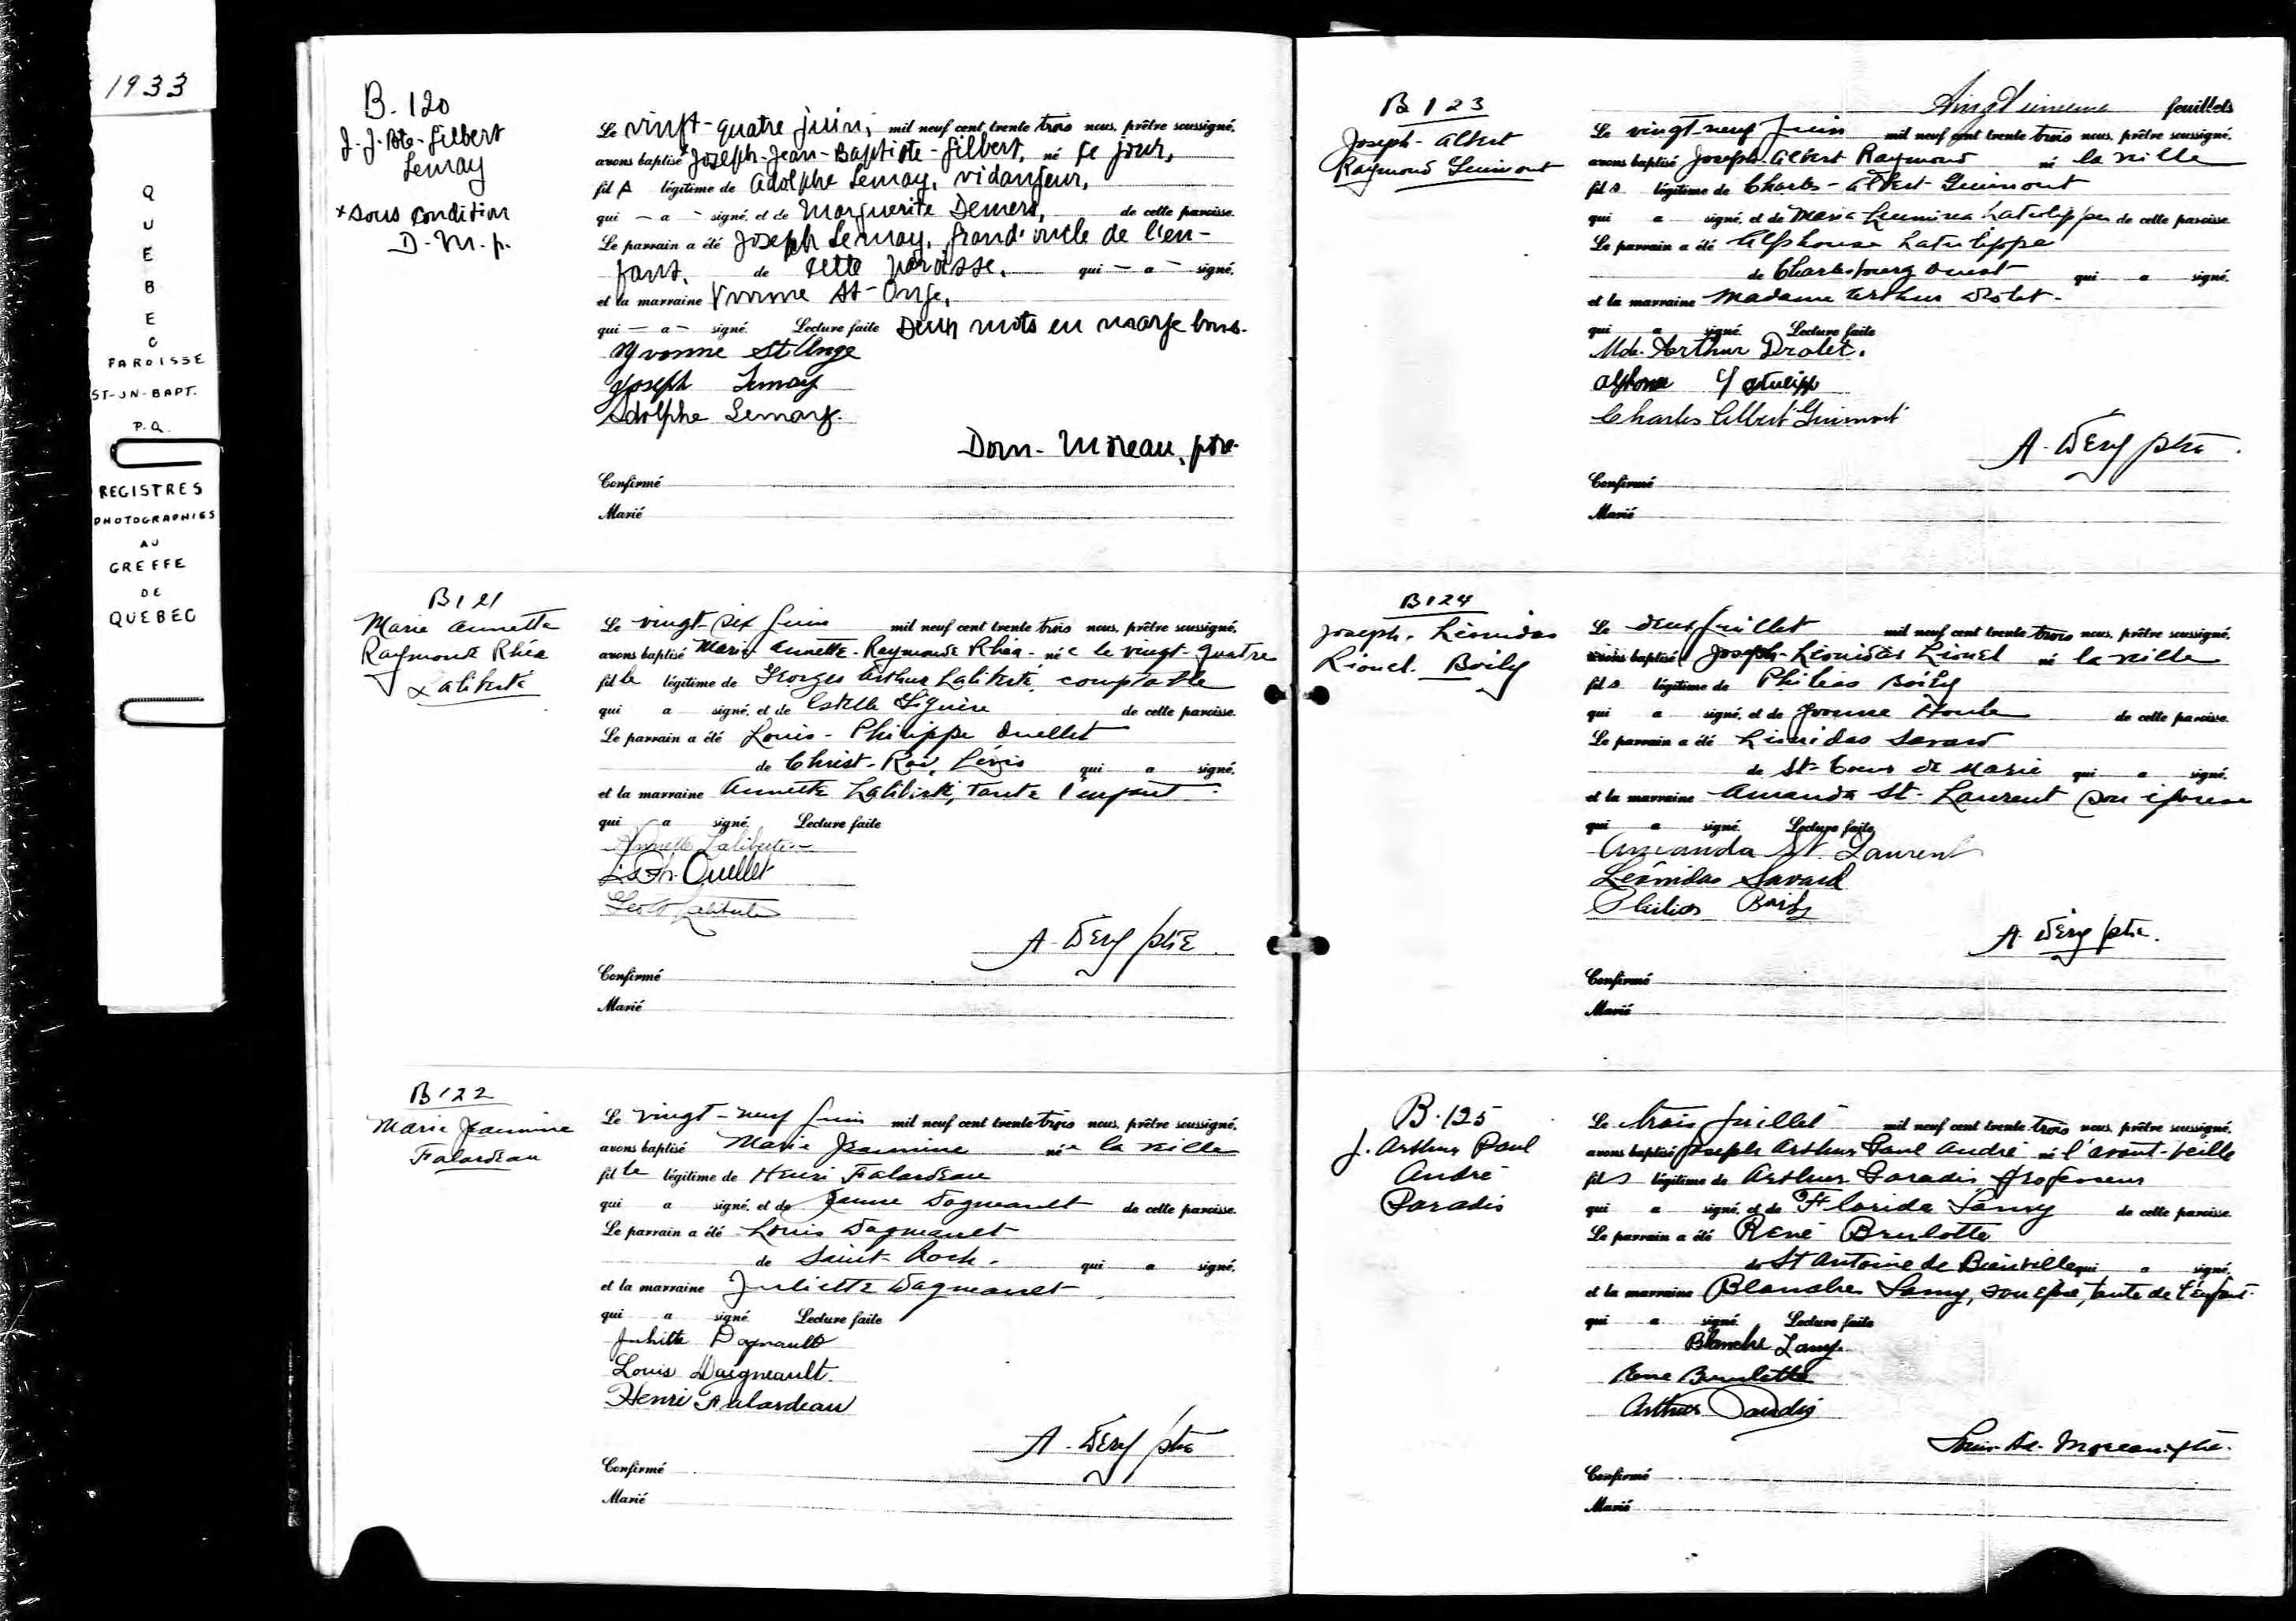 1933
QUEBEC
PAROISSE
ST-JN-BAPT.
P.Q.
REGISTRES
PHOTOGRAPHIES
AU
GREFFE
DE
QUEBEC
B. 120
J.-J.-Bte-Gilbert
Lemay
+ sous condition
D. M. p.
Le vingt-quatre juin, mil neuf cent trente trois nous, prêtre soussigné,
avons baptisé + Joseph-Jean-Baptiste-Gilbert, né ce jour,
fils légitime de Adolphe Lemay, vidangeur,
qui - a - signé, et de Marguerite Demers, de cette paroisse.
Le parrain a été Joseph Lemay, grand'oncle de l'en-
fant, de cette paroisse, qui - a - signé,
et la marraine Yvonne St-Onge,
qui - a - signé. Lecture faite Deux mots en marge bons.
Yvonne St Onge
Joseph Lemay
Adolphe Lemay.
Dom. Moreau, ptre
Confirmé
Marié
B 121
Marie Annette
Raymonde Rhéa
Laliberté
Le vingt-six juin mil neuf cent trente trois nous, prêtre soussigné,
avons baptisé Marie-Annette-Raymonde Rhéa- née le vingt-quatre
fille légitime de Georges Arthur Laliberté, comptable
qui a signé, et de Estelle Giguère de cette paroisse.
Le parrain a été Louis-Philippe Ouellet
de Christ-Roi, Lévis qui a signé,
et la marraine Annette Laliberté, tante l'enfant.
qui a signé. Lecture faite
Annette Laliberté
Ls Ph. Ouellet
Laliberté
A. Déry ptre
Confirmé
Marié
B 122
Marie Jeannine
Falardeau
Le vingt-neuf juin mil neuf cent trente trois nous, prêtre soussigné,
avons baptisé Marie Jeannine née la veille
fille légitime de Henri Falardeau
qui a signé, et de Jeanne Dagneault de cette paroisse.
Le parrain a été Louis Dagneault
de Saint-Roch. qui a signé,
et la marraine Juliette Dagneault
qui a signé. Lecture faite
Juliette Dagnault
Louis Daigneault.
Henri Falardeau
A. Déry ptre
Confirmé
Marié
Vingtunième feuillets
B 123
Joseph-Albert
Raymond Guimont
Le vingt-neuf juin mil neuf cent trente trois nous, prêtre soussigné,
avons baptisé Joseph-Albert Raymond né la veille
fils légitime de Charles-Albert Guimont
qui a signé, et de Maria Latulippe de cette paroisse.
Le parrain a été Alphonse Latulippe
de Charlesbourg Ouest qui a signé,
et la marraine Madame Arthur Drolet.
qui a signé. Lecture faite
Mde. Arthur Drolet.
Alphonse Latulipp
Charles Albert Guimont
A. Déry ptre.
Confirmé
Marié
B 124
Joseph. Léonidas
Lionel. Boily
Le deux juillet mil neuf cent trente trois nous, prêtre soussigné,
avons baptisé Joseph-Léonidas Lionel né la veille
fils légitime de Philias Boily
qui a signé, et de Yvonne Houle de cette paroisse.
Le parrain a été Léonidas Savard
de St-Coeur de Marie qui a signé,
et la marraine Amanda St-Laurent son épouse
qui a signé. Lecture faite
Amanda St. Laurent
Léonidas Savard
Philias Boily
A. Déry ptre.
Confirmé
Marié
B. 125
J. Arthur Paul
André
Paradis
Le trois juillet mil neuf cent trente trois nous, prêtre soussigné,
avons baptisé Joseph Arthur Paul André né l'avant-veille
fils légitime de Arthur Paradis professeur
qui a signé, et de Florida Lamy de cette paroisse.
Le parrain a été René Brulotte
de St Antoine de Bienville qui a signé,
et la marraine Blanche Lamy, son épse, tante de l'enfant.
qui a signé. Lecture faite
Blanche Lamy.
Rene Brulotte
Arthur Paradis
Louis-Ad. Moreau ptre.
Confirmé
Marié